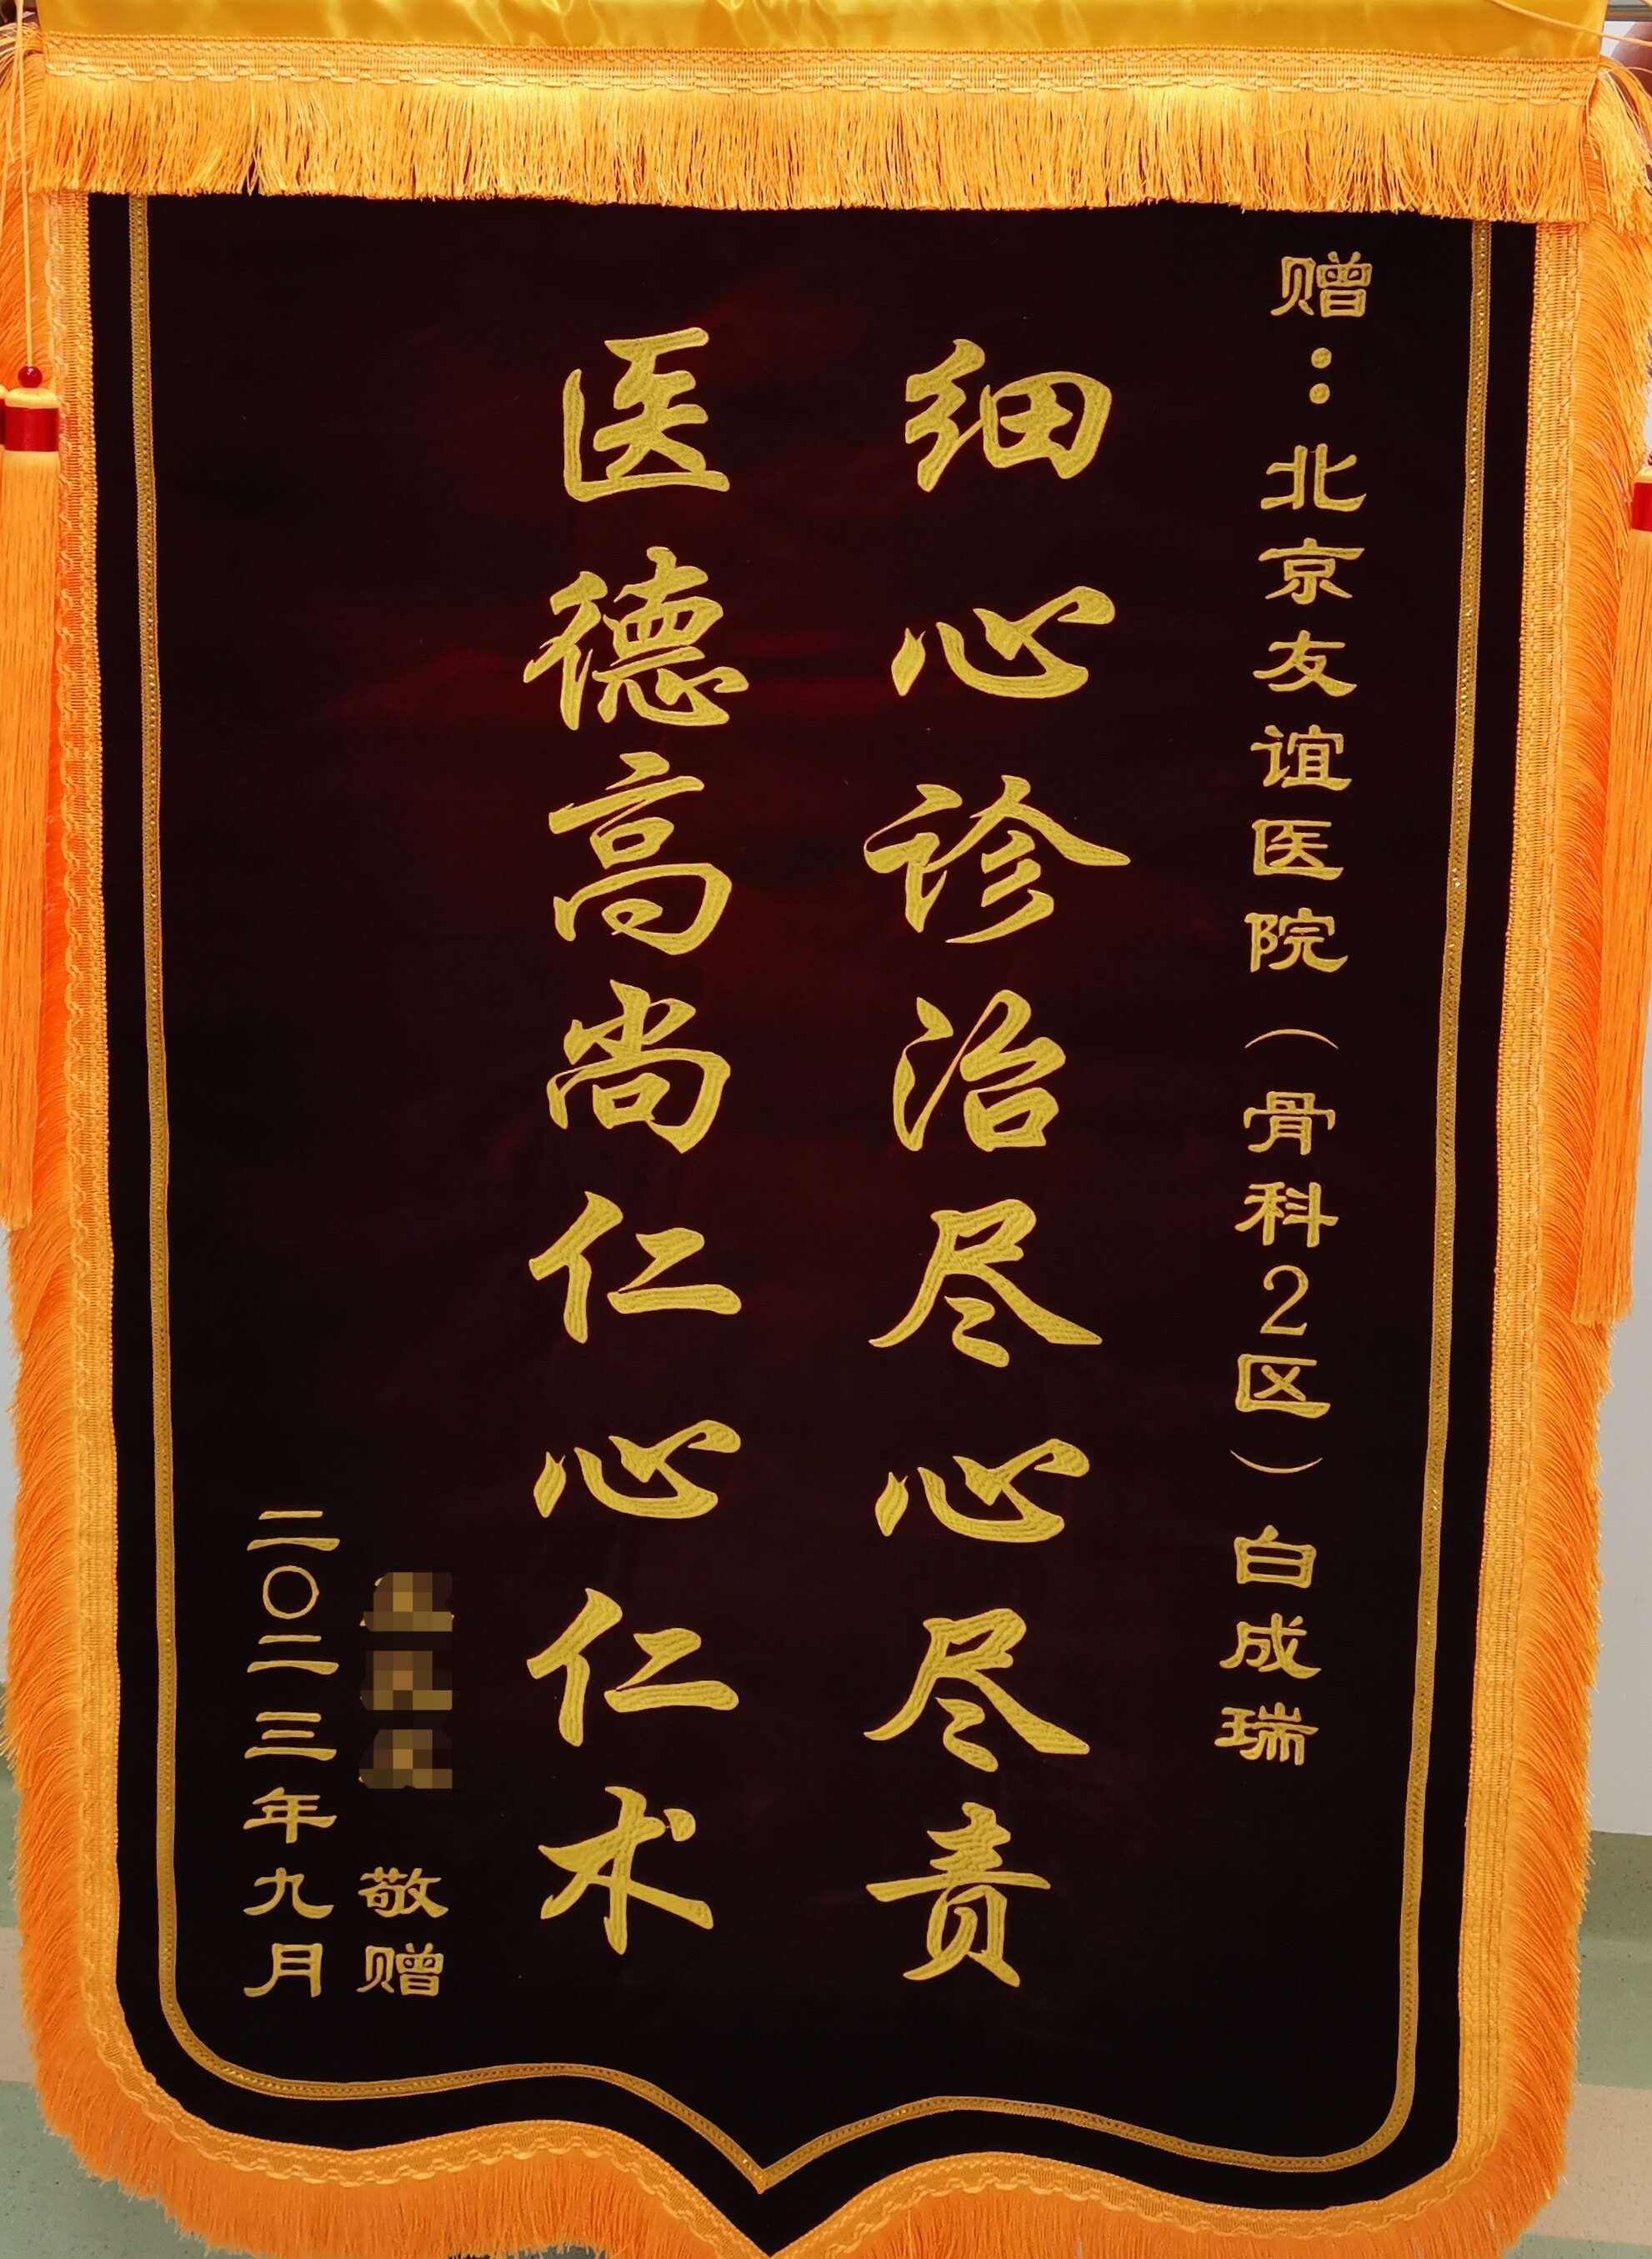 赠：北京友谊医院（骨科2区）白成瑞
细心诊治尽心尽责
医德高尚仁心仁术
敬赠
二〇二三年九月